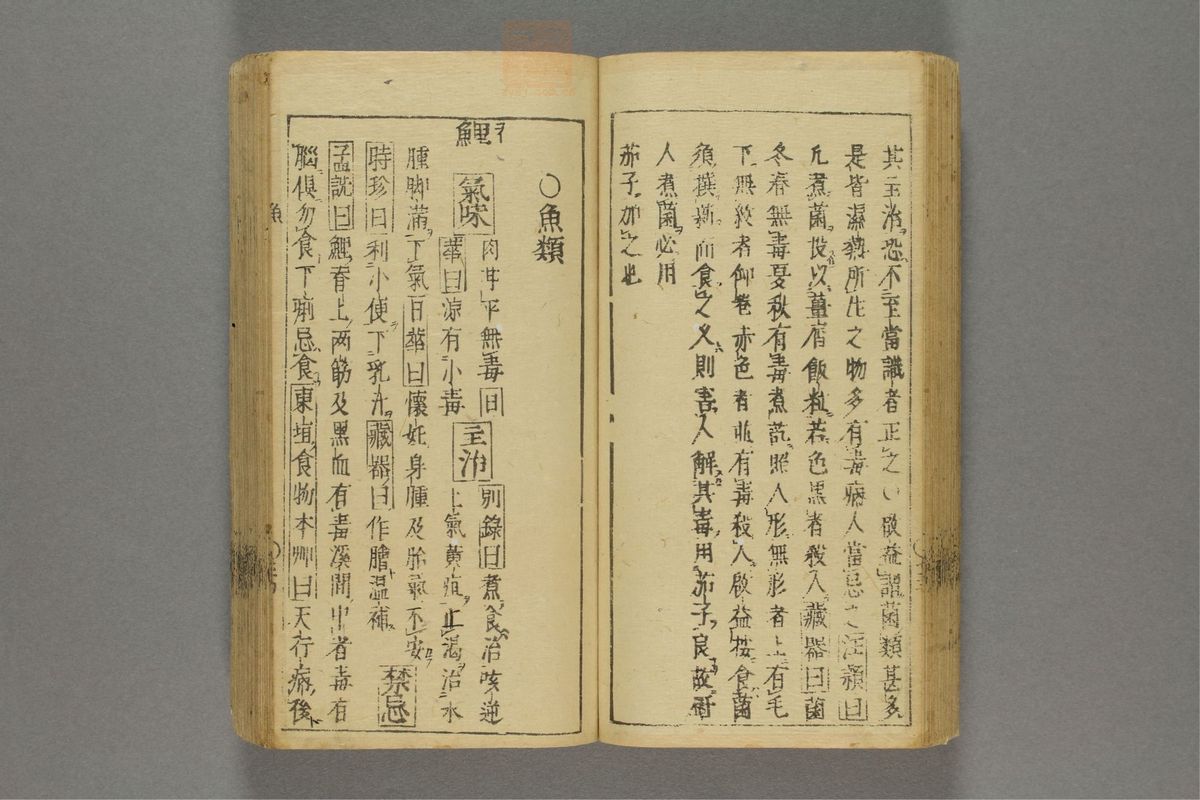 其主治恐不至當識者正之〇啟益謂菌類甚多
是皆濕熱所生之物多有毒病人當忌之汪頴曰
凡煮菌投以薑屑飯粒若色黒者殺人藏器曰菌
冬春無毒夏秋有毒煮訖照人形無影者上有毛
下無紋者仰巻赤色者並有毒殺人啟益按食菌
須撰新而食之又則害人解其毒用茄子良故
人煮菌必用
茄子加之也
〇魚類
鯉
氣味 肉甘平無毒日
華曰凉有小毒 主治 別錄曰煮食治咳逆
上氣黄疸止渇治水
腫脚滿下氣日華曰懷妊身腫及胎氣不安
時珍曰利小便下乳汁藏器曰作膾温補 禁忌
孟詵曰鯉脊上两筋及黒血有毒溪澗中者毒有
腦俱勿食下痢忌食東垣食物本艸曰天行病後
魚